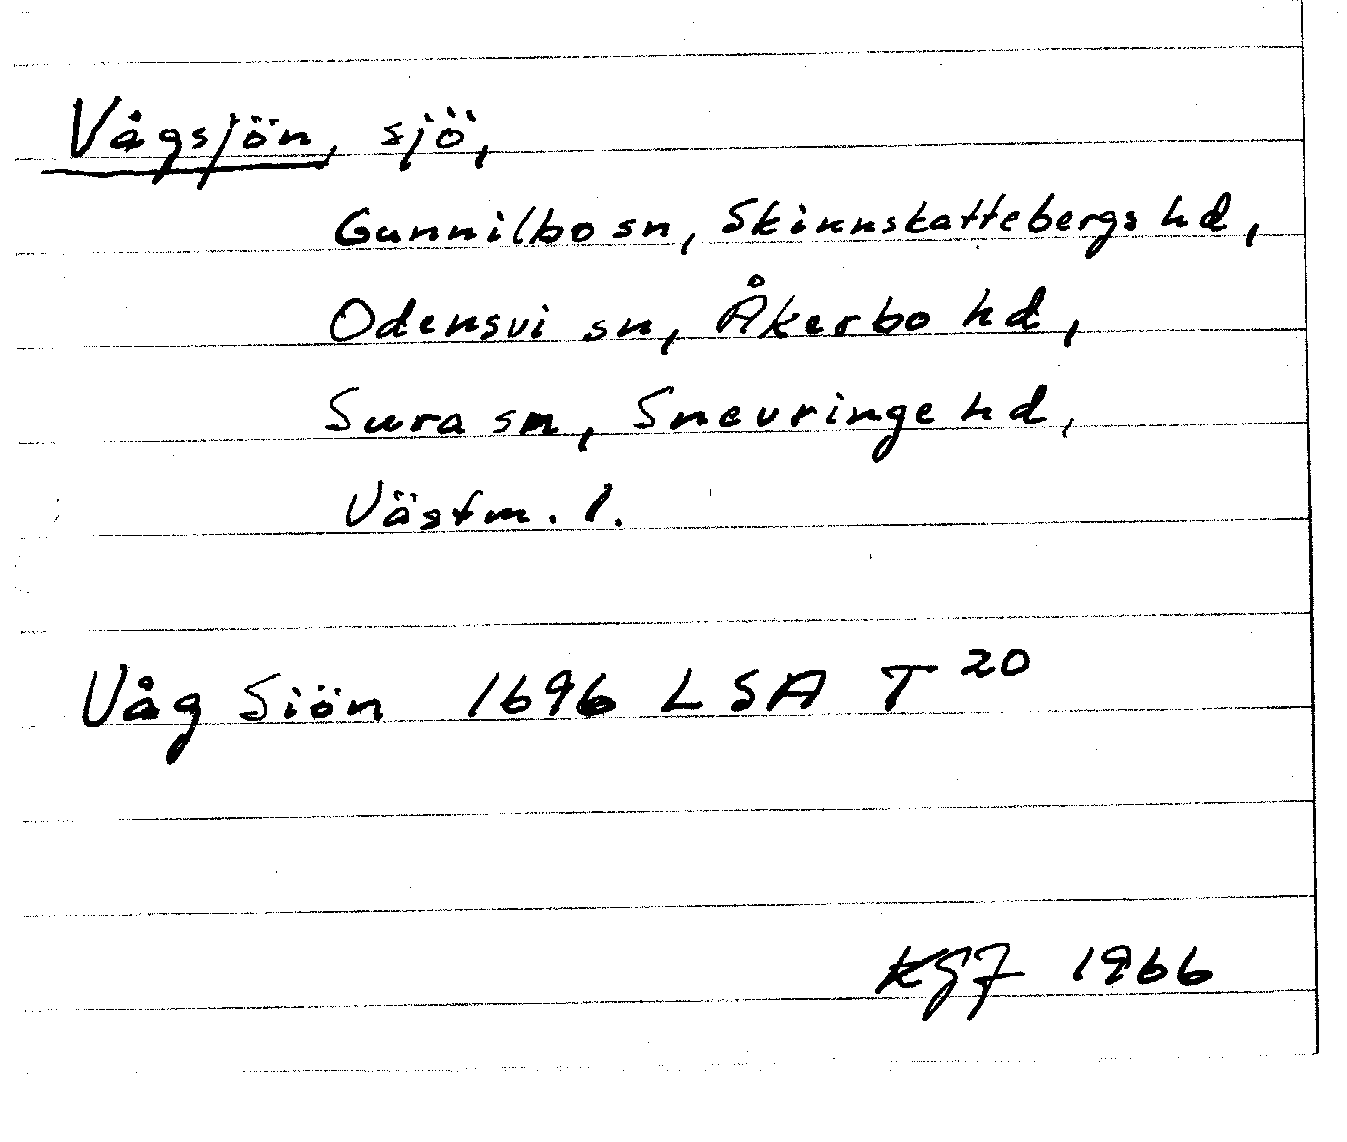 Vågsjön, sjö,
Gunnilbo sn, Skinnskattebergs hd,
Odensvi sn, Åkerbo hd,
Sura sn, Snevringe hd,
Västm. l.
Våg Siön 1696 LSA T 20
KGF 1966